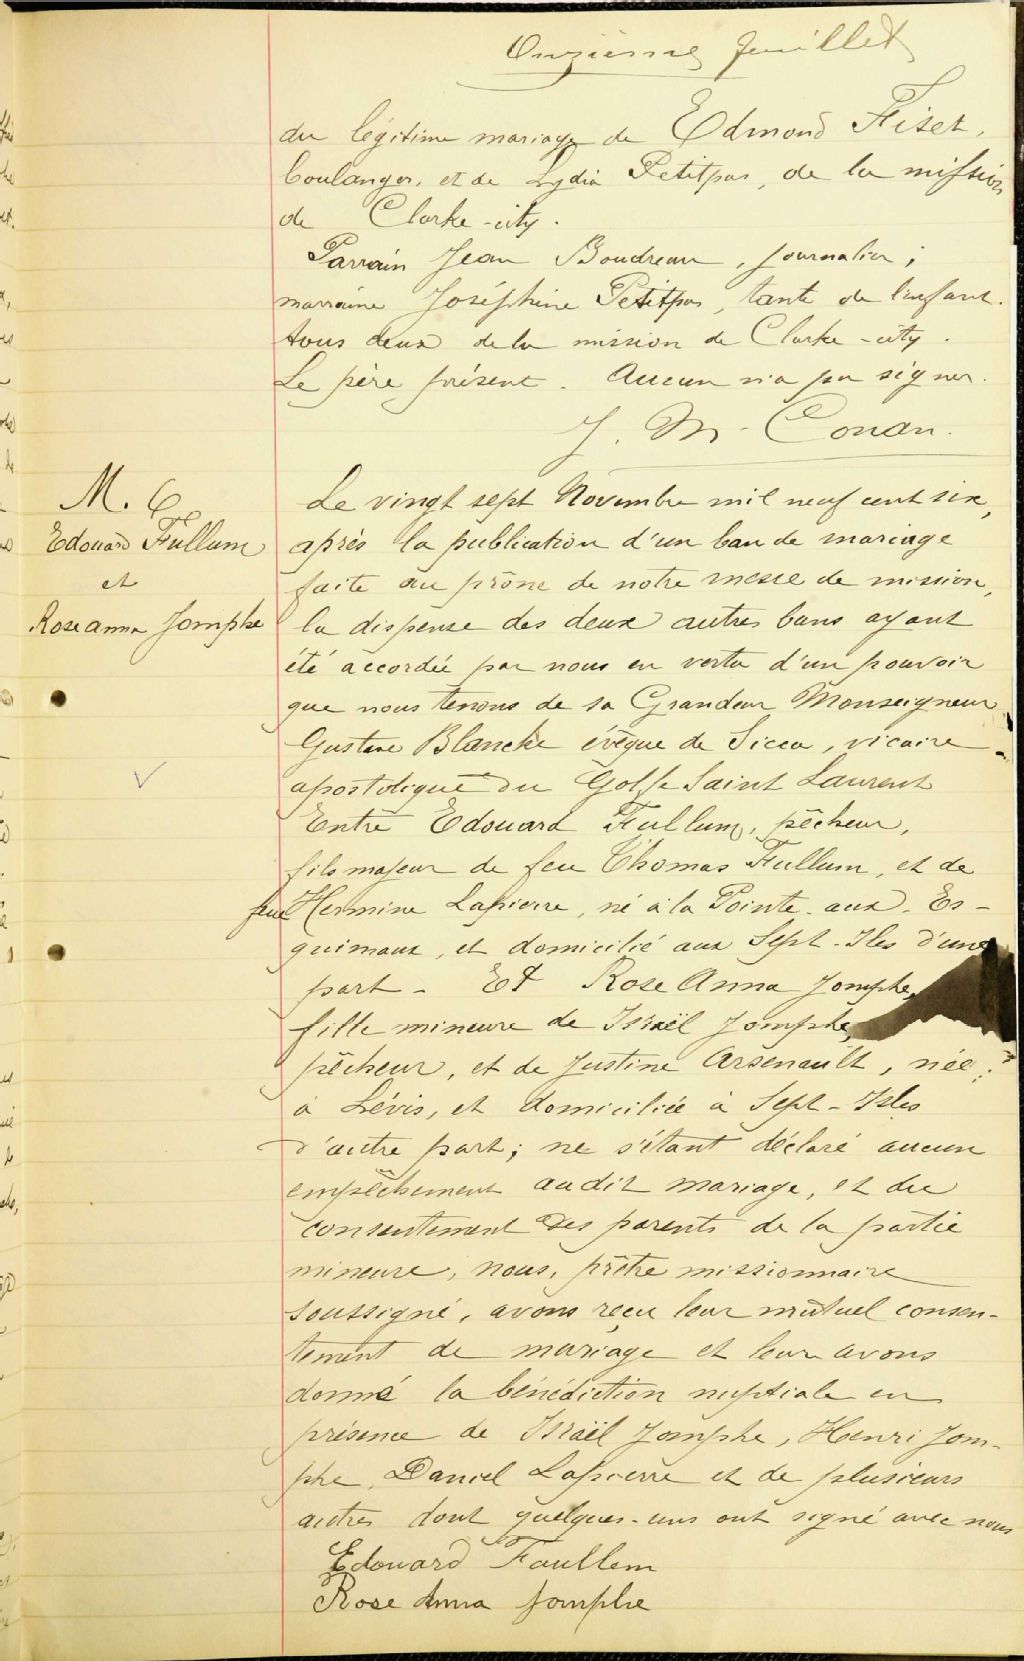 Onzième feuillet
du légitime mariage de Edmond Fiset,
boulanger, et de Lydia Petitpas, de la mission
de Clarke-city.
Parrain Jean Boudreau, journalier;
marraine Joséphine Petitpas, tante de l'enfant.
tous deux de la mission de Clarke-city.
Le père présent. Aucun n'a pu signer.
J. M. Conan.
M. 6
Edouard Fullum
et
Rose anna Jomphe
Le vingt sept Novembre mil neuf cent six,
après la publication d'un ban de mariage
faite au prône de notre messe de mission,
la dispense des deux autres bans ayant
été accordée par nous en vertu d'un pouvoir
que nous tenons de sa Grandeur Monseigneur
Gustave Blanche évêque de Sicca, vicaire
apostolique du Golfe Saint Laurent
Entre Edouard Fullum, pêcheur,
fils majeur de feu Thomas Fullum, et de
feue Hermine Lapierre, né à la Pointe-aux-Es-
quimaux, et domicilié aux Sept-Iles d'une
part - Et Rose Anna Jomphe,
fille mineure de Israël Jomphe,
pêcheur, et de Justine Arsenault, née
à Lévis, et domiciliée à Sept-Isles
d'autre part; ne s'étant déclaré aucun
empêchement audit mariage, et du
consentement des parents de la partie
mineure, nous, prêtre missionnaire
soussigné, avons reçu leur mutuel consen-
tement de mariage et leur avons
donné la bénédiction nuptiale en
présence de Israël Jomphe, Henri Jom-
phe, Daniel Lapierre et de plusieurs
autres dont quelques-uns ont signé avec nous
Edouard Foullem
Rose Anna Jomphe